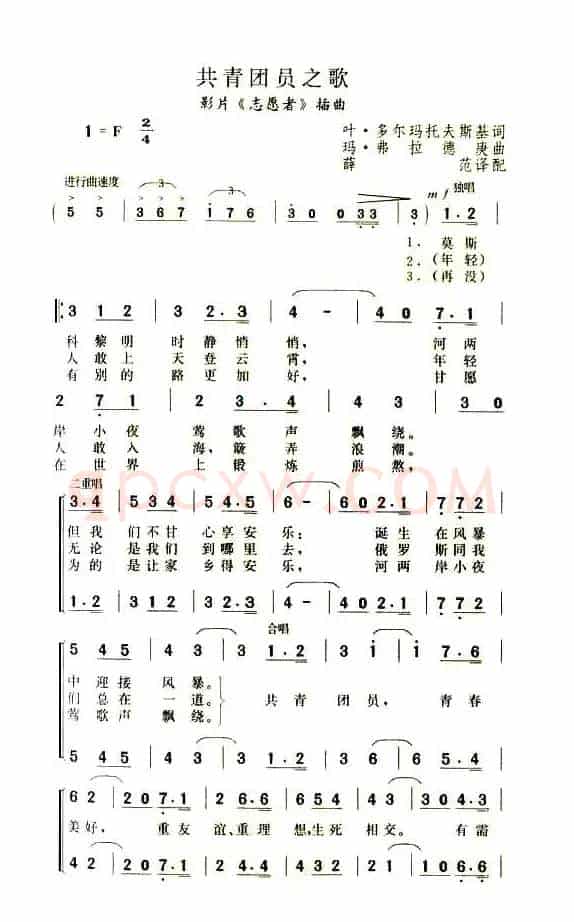 共青团员之歌
影片《志愿者》插曲
1=F 2/4
叶·多尔玛托夫斯基词
玛·弗拉德庚曲
薛范译配
进行曲速度
3 3 mf 独唱
( 5 5 | 3 6 7 1 7 6 | 3 0 0 3 3 | 3 ) 1. 2 |
1. 莫斯
2. (年轻)
3. (再没)
3 1 2 | 3 2. 3 | 4 - | 4 0 7. 1 |
科黎明时静悄悄, 河两
人敢上天登云霄, 年轻
有别的路更加好, 甘愿
2 7 1 | 2 3. 4 | 4 3 | 3 0
岸小夜莺歌声飘绕。
人敢入海,簸弄浪潮。
在世界上锻炼煎熬,
二重唱
3. 4 | 5 3 4 | 5 4. 5 | 6 - | 6 0 2. 1 | 7 7 2 |
但我们不甘心享安乐: 诞生在风暴
无论是我们到哪里去, 俄罗斯同我
为的是让家乡得安乐, 河两岸小夜
1. 2 | 3 1 2 | 3 2. 3 | 4 - | 4 0 2. 1 | 7 7 2 |
合唱
5 4 5 | 4 3 | 3 1. 2 | 3 i | i 7. 6 |
中迎接风暴。
们总在一道。 共青团员,青春
莺歌声飘绕。
5 4 5 | 4 3 | 3 1. 2 | 3 6 | 6 5. 4 |
6 2 | 2 0 7. 1 | 2 6. 6 | 6 5 4 | 4 3 | 3 0 1. 2 |
美好, 重友谊、重理想,生死相交。有需
4 2 | 2 0 7. 1 | 2 4. 4 | 4 3 2 | 2 1 | 1 0 6. 6 |
qpcxw.COM